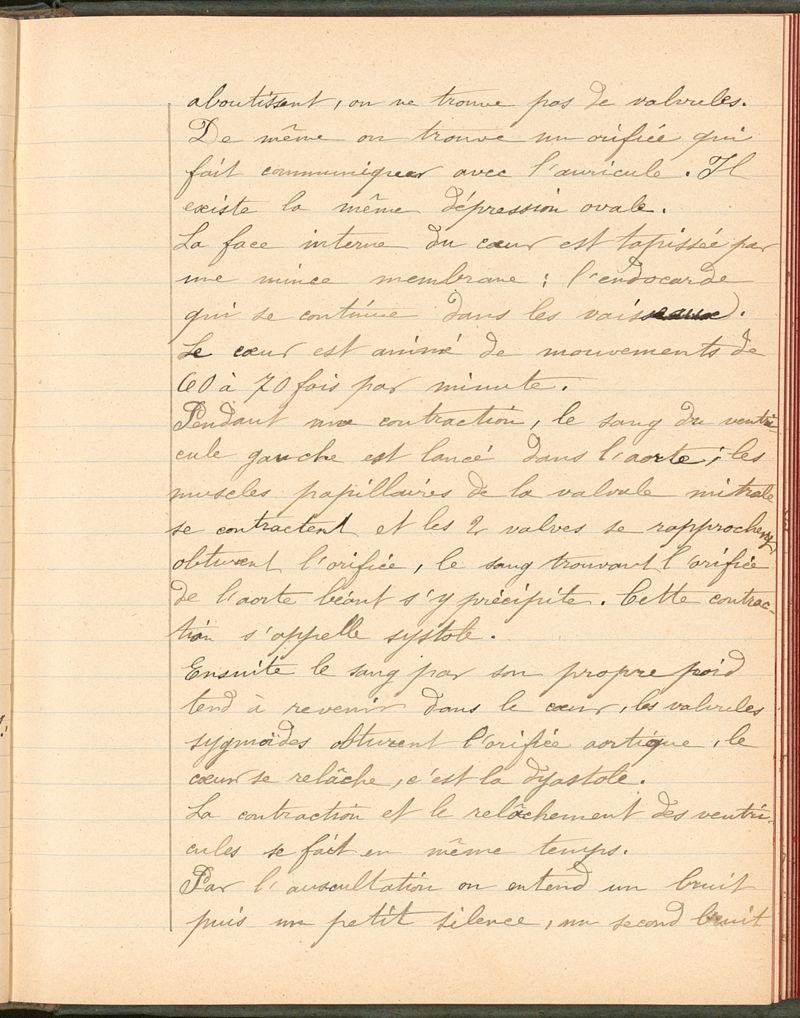 aboutissent, on ne trouve pas de valvules.
De même on trouve un orifice qui
fait communiquer avec l'auricule. Il
existe la même dépression ovale.
La face interne du cœur est tapissée par
une mince membrane : l'endocarde
qui se continue dans les vaisseaux.
Le cœur est animé de mouvements de
60 à 70 fois par minute.
Pendant une contraction, le sang du ventri-
cule gauche est lancé dans l'aorte ; les
muscles papillaires de la valvule mitrale
se contractent et les 2 valves se rapprochent
obturent l'orifice, le sang trouvant l'orifice
de l'aorte béant s'y précipite. Cette contrac-
tion s'appelle systole.
Ensuite le sang par son propre poid
tend à revenir dans le cœur, les valvules
sygmoïdes obturent l'orifice aortique, le
cœur se relâche, c'est la dyastole.
La contraction et le relâchement des ventri-
cules se fait en même temps.
Par l'auscultation on entend un bruit
puis un petit silence, un second bruit